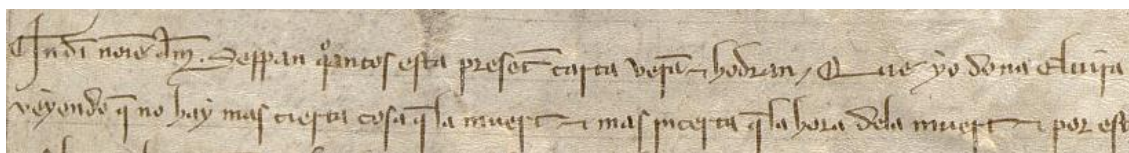 In dī noīe Am̄. Seppan qᵃntos esta presēt carta verā & hodran, Que yo dona Eluira
veyendo q̄ no hay mas cierta cosa q̄ la muert & mas incerta q̄ la hora dela muert & por esto